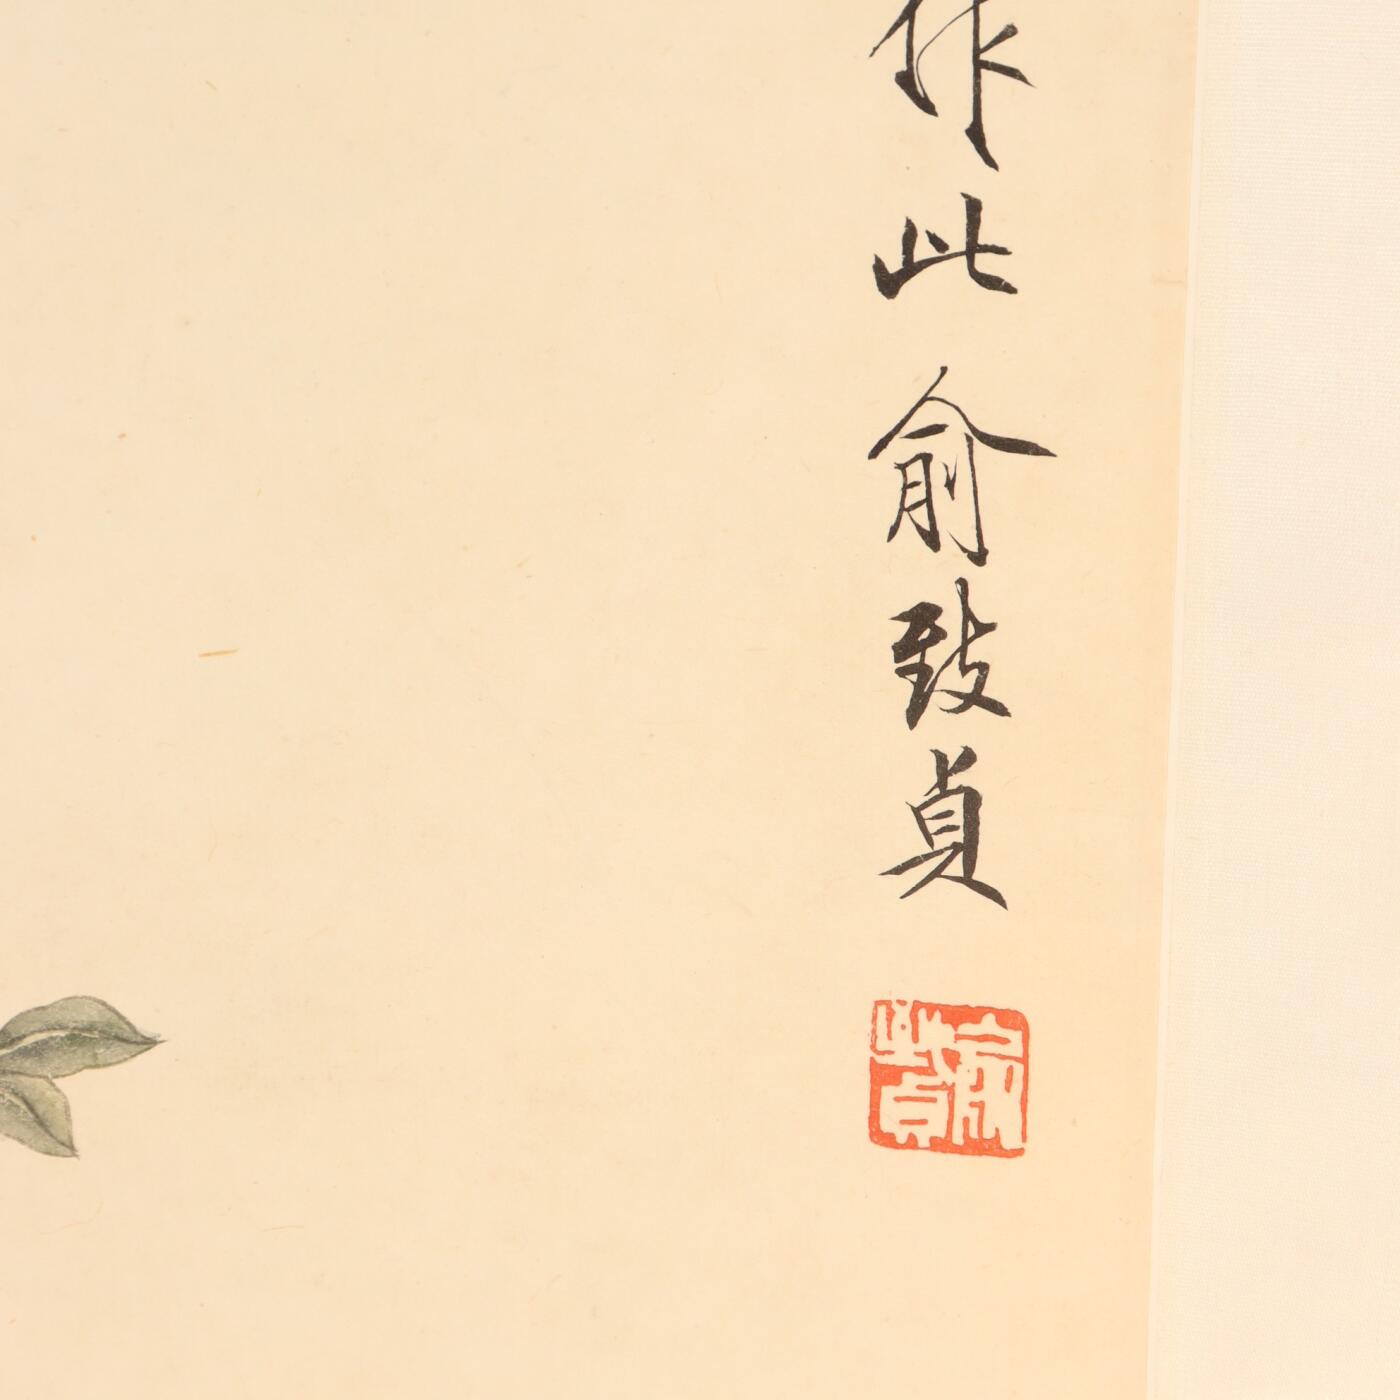 作此俞致貞
俞致貞